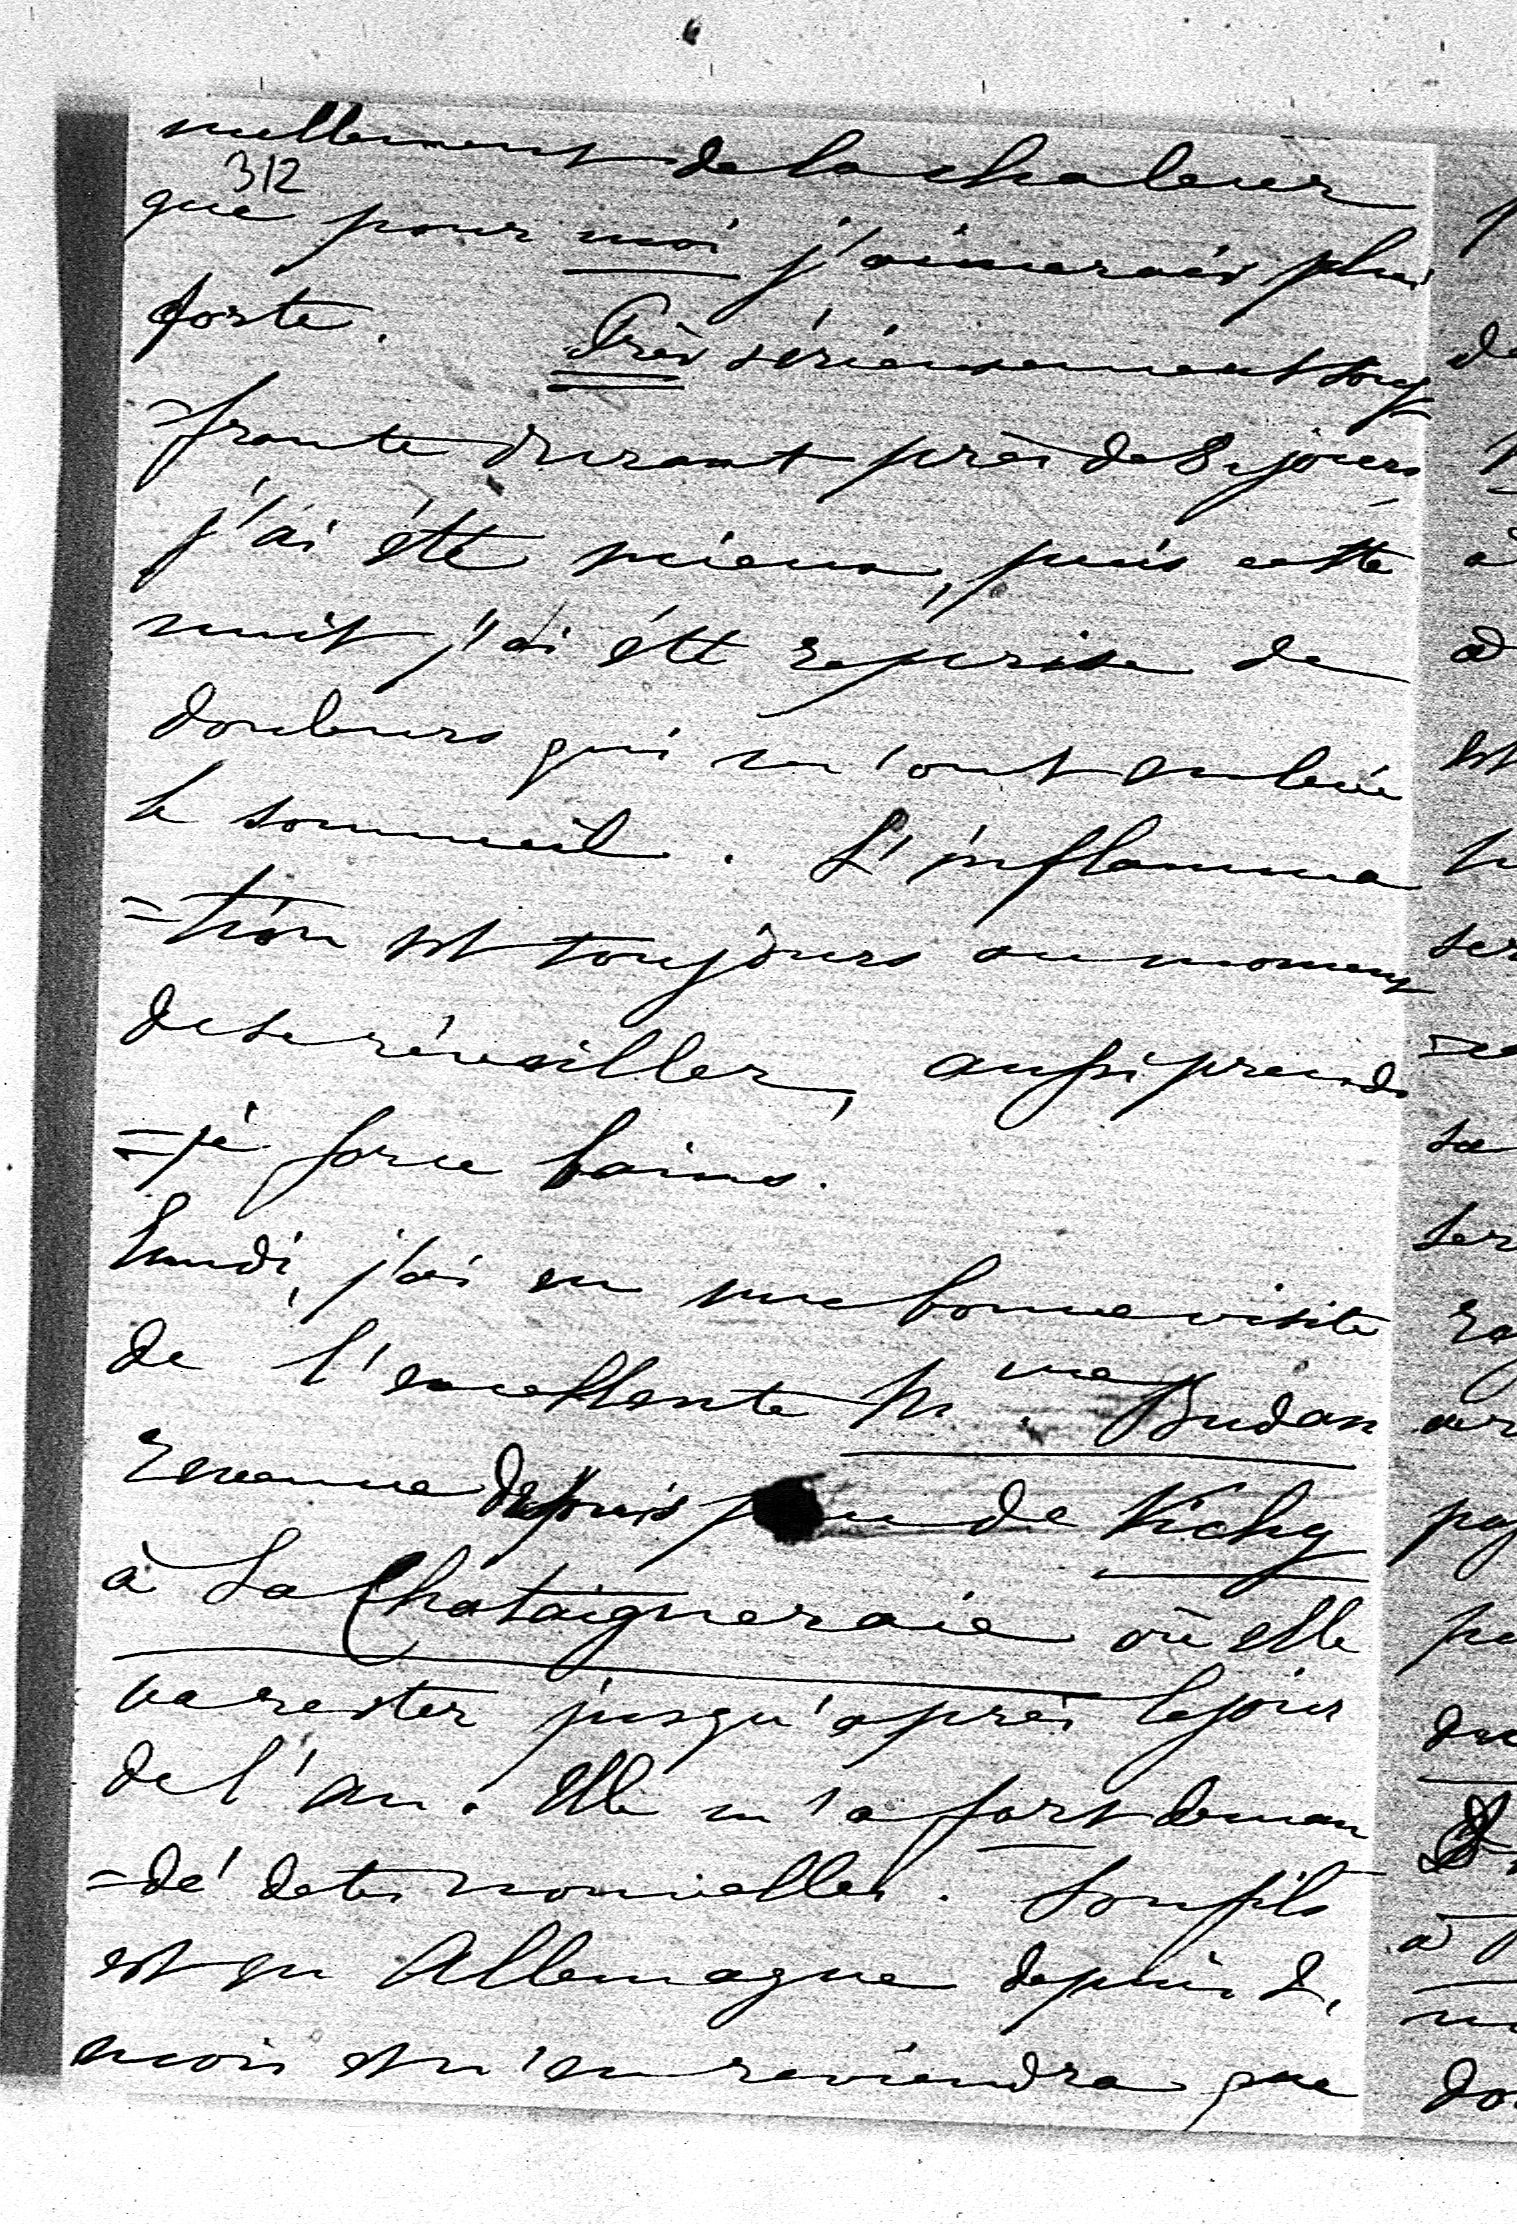 nullement de la chaleur
312
que pour moi j'aimerais plus
forte. Très sérieusement souf
=frante durant près de 8 jours
j'ai été mieux, puis cette
nuit j'ai été reprise de
douleurs qui m'ont enlevé
le sommeil. L'inflamma
=tion est toujours au moment
de se réveiller, aussi prends
=je force bains.
Lundi, j'ai eu une bonne visite
de l'excellente Mme Budan
revenue depuis peu de Vichy
à La Chataigneraie où elle
va rester jusqu'après le jour
de l'an. Elle m'a fort deman
=dé de tes nouvelles. Son fils
est en Allemagne depuis
mois et n'en reviendra que